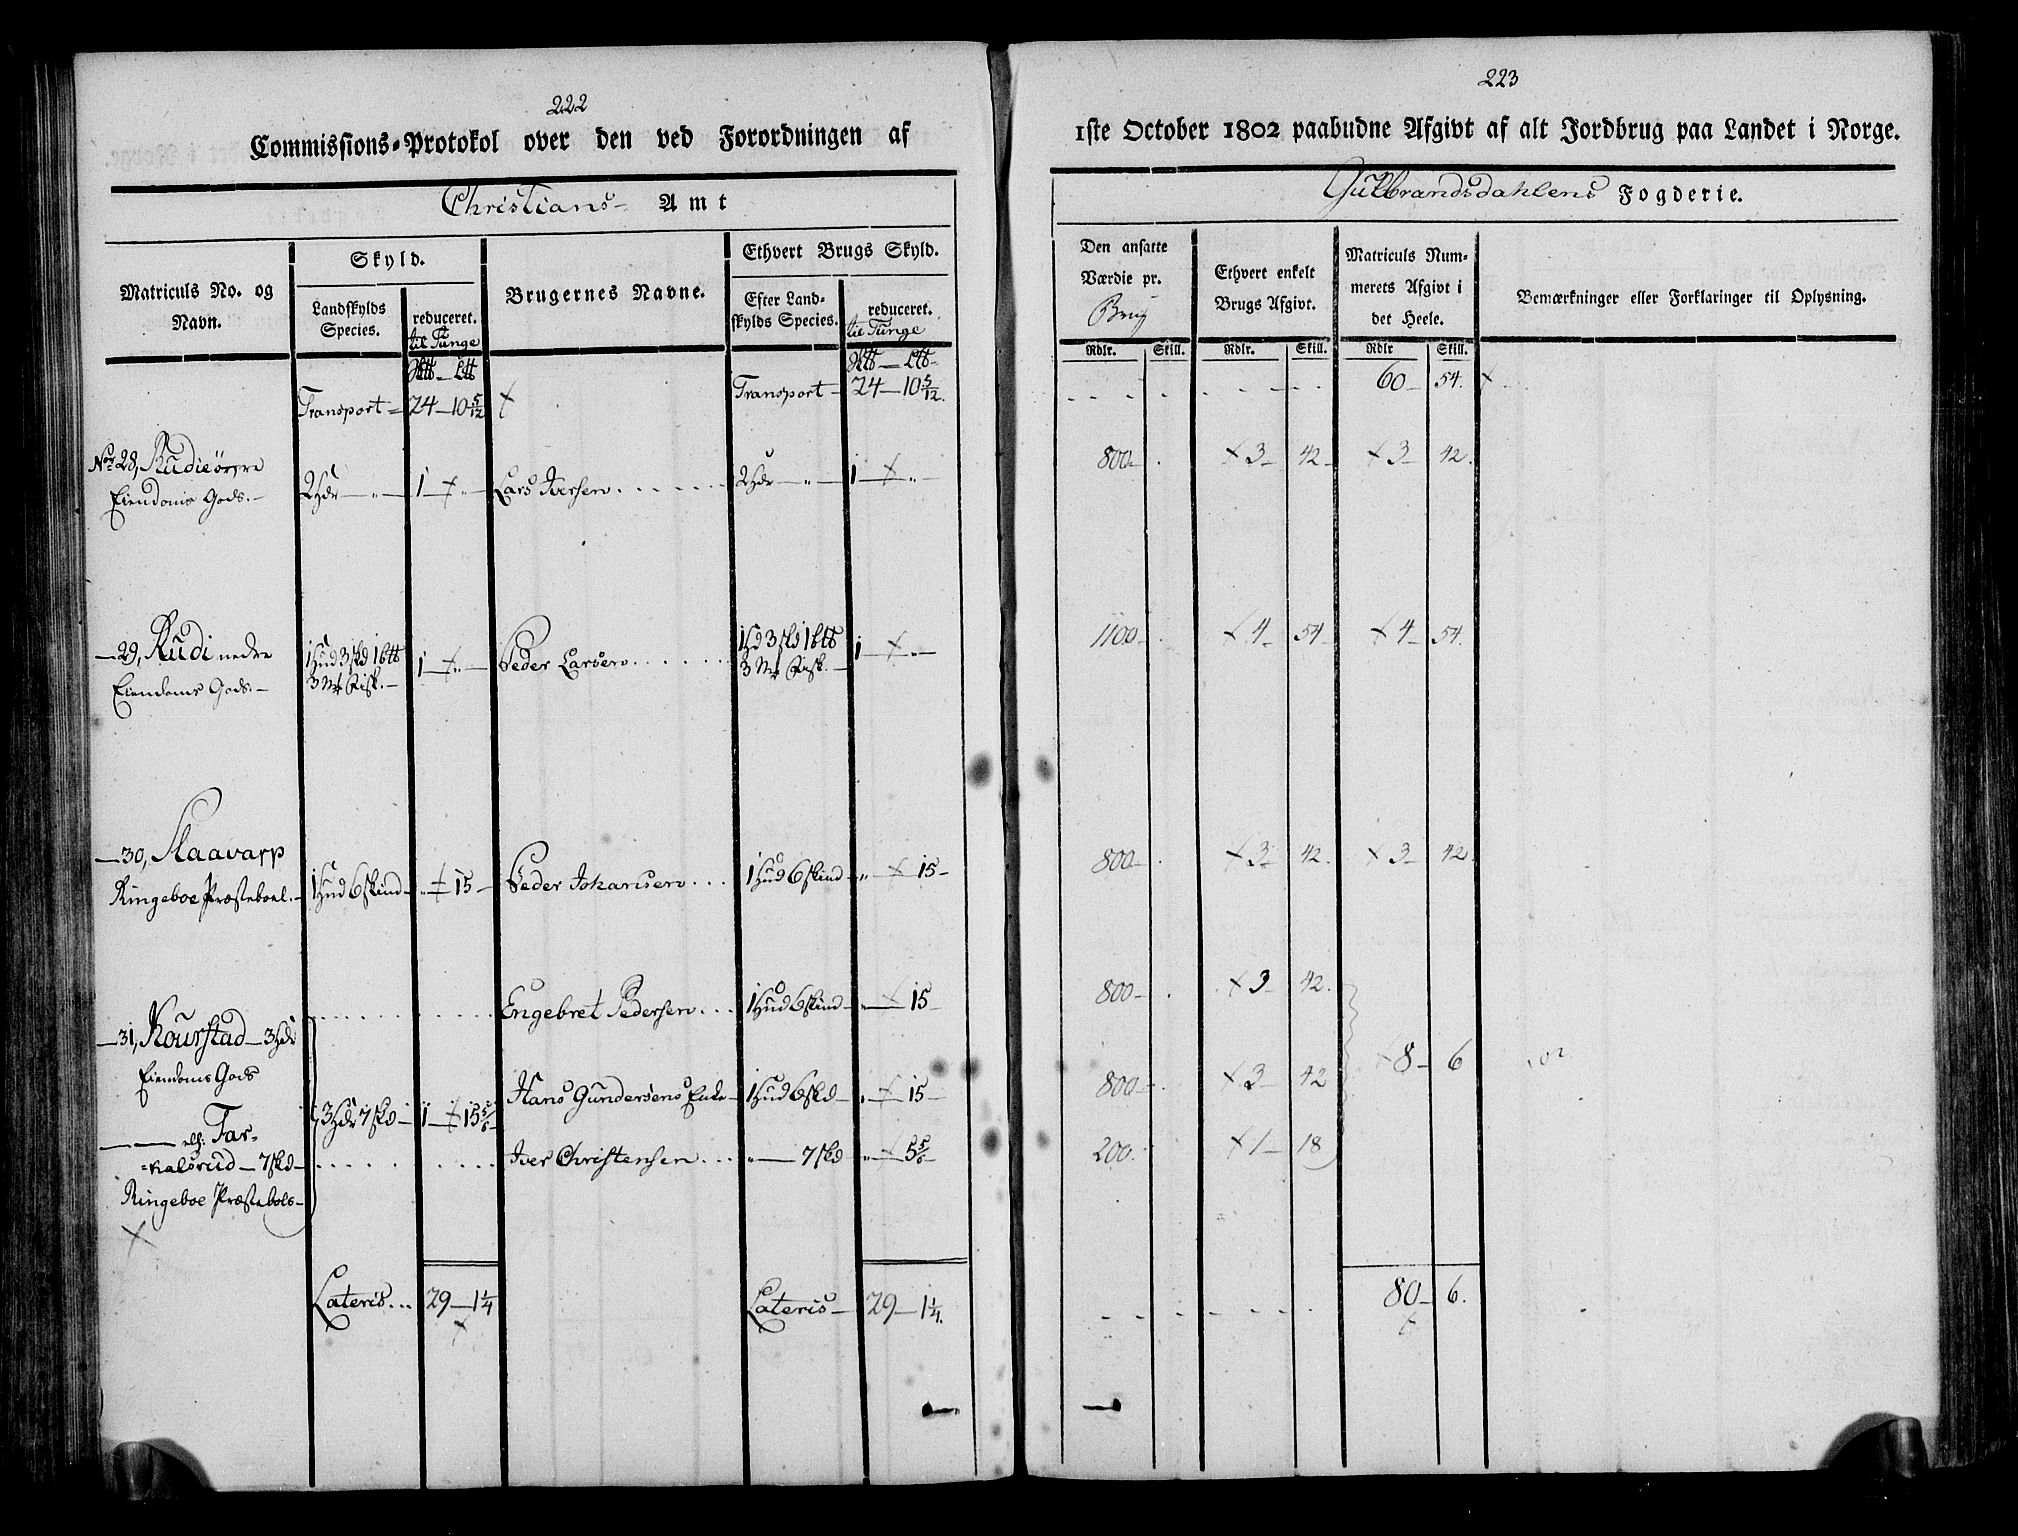 222
Commissions-Protokol over den ved Forordningen af
Christians- Amt
Matriculs No. og Navn.
Skyld.
Landskylds Species.
reduceret. til Tunge
Brugernes Navne.
Ethvert Brugs Skyld.
Efter Landskylds Species.
reduceret. til Tunge
Transport = 24 — 10 5/12 Transport — 24 — 10 5/12.
No 28, Rudi øvre
Eiendoms Gods.— 2 Hdr — „ — 1 — „ — Lars Iversen . . . . . . 2 Hdr — „ — 1 — „ —
— 29, Rudi nedre 1 Hud 3 skd 1 Ltt 1 — „ — Peder Larsen . . . . . . 1 Hd 3 skd 1 Ltt 1 — „ —
Eiendoms Gods.— 3 Mk Fisk.— 3 Mk Fisk.—
— 30, Slaavarp
Ringeboe Præsteboel.— 1 Hud 6 skind — „ — 15 — Peder Johansen . . . 1 Hud 6 skind — „ — 15 —
Engebret Pedersen . . . 1 Hud 6 skind — „ — 15 —
— 31, Kourstad — 3 Hdr
Eiendoms Gods
Hans Gundersens Enke — 1 Hud 6 skd — „ — 15 —
3 Hdr 7 skd — 1 — 15 5/6
— — Far-
=kalsrud — 7 skd — Iver Christensen . . . „ — 7 skd „ — 5 5/6
Ringeboe Præstebols —
Lateris . . . 29 — 1 1/4 Lateris — 29 — 1 1/4.
223
1ste October 1802 paabudne Afgivt af alt Jordbrug paa Landet i Norge.
Gulbrandsdahlens Fogderie.
Den ansatte Værdie pr. Brug
Ethvert enkelt Brugs Afgivt.
Matriculs Nummerets Afgivt i det Heele.
Bemærkninger eller Forklaringer til Oplysning.
Rdlr. Skill. Rdlr. Skill. Rdlr Skill.
60 — 54.
800 — . 3 — 42 — 3 — 42.
1100 — . 4 — 54 4 — 54.
800 — . 3 — 42. 3 — 42.
800 — . 3 — 42.
8 — 6
800 — . 3 — 42
200. 1 — 18
80 — 6.